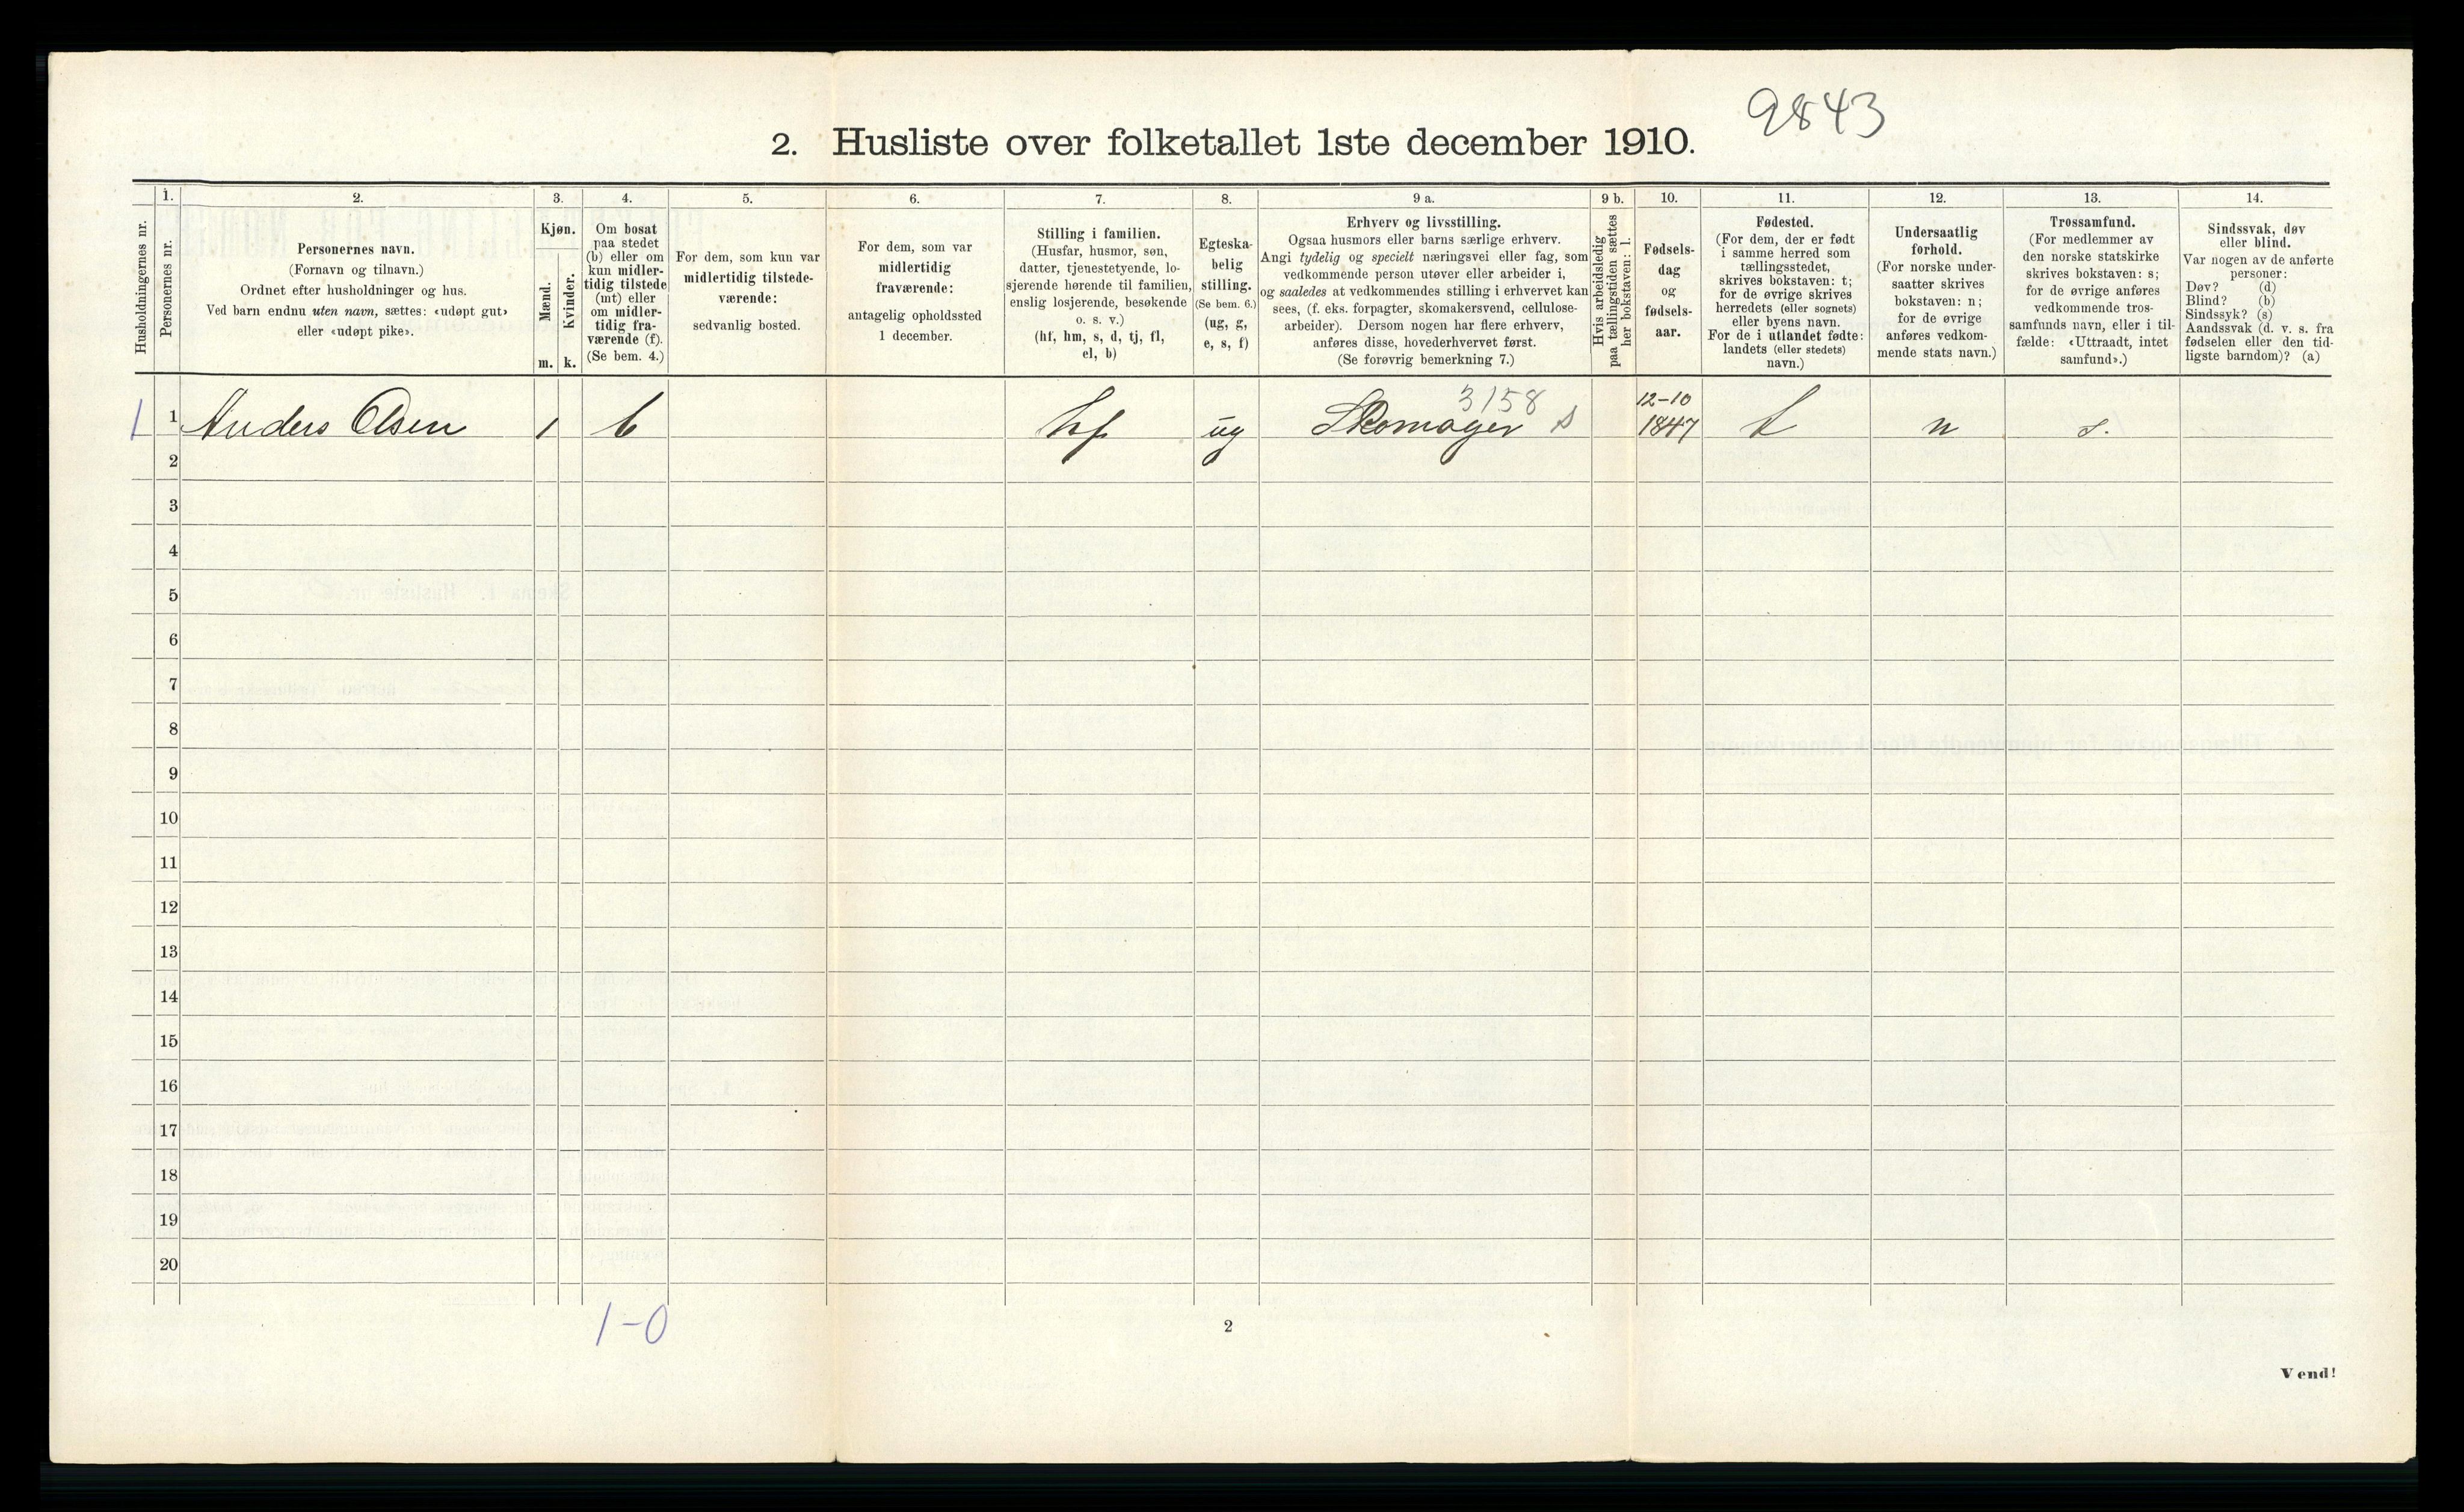 9843
2. Husliste over folketallet 1ste december 1910.
Husholdningernes nr.
1.
Personernes nr.
2.
Personernes navn.
(Fornavn og tilnavn.)
Ordnet efter husholdninger og hus.
Ved barn endnu uten navn, sættes: «udøpt gut»
eller «udøpt pike».
3.
Kjøn.
Mænd.
m.
Kvinder.
k.
4.
Om bosat
paa stedet
(b) eller om
kun midler-
tidig tilstede
(mt) eller
om midler-
tidig fra-
værende (f).
(Se bem. 4.)
5.
For dem, som kun var
midlertidig tilstede-
værende:
sedvanlig bosted.
6.
For dem, som var
midlertidig
fraværende:
antagelig opholdssted
1 december.
7.
Stilling i familien.
(Husfar, husmor, søn,
datter, tjenestetyende, lo-
sjerende hørende til familien,
enslig losjerende, besøkende
o. s. v.)
(hf, hm, s, d, tj, fl,
el, b)
8.
Egteska-
belig
stilling.
(Se bem. 6.)
(ug, g,
e, s, f)
9 a.
Erhverv og livsstilling.
Ogsaa husmors eller barns særlige erhverv.
Angi tydelig og specielt næringsvei eller fag, som
vedkommende person utøver eller arbeider i,
og saaledes at vedkommendes stilling i erhvervet kan
sees, (f. eks. forpagter, skomakersvend, cellulose-
arbeider). Dersom nogen har flere erhverv,
anføres disse, hovederhvervet først.
(Se forøvrig bemerkning 7.)
9 b.
Hvis arbeidsledig
paa tællingstiden sættes
her bokstaven: l.
10.
Fødsels-
dag
og
fødsels-
aar.
11.
Fødested.
(For dem, der er født
i samme herred som
tællingsstedet,
skrives bokstaven: t;
for de øvrige skrives
herredets (eller sognets)
eller byens navn.
For de i utlandet fødte:
landets (eller stedets)
navn.)
12.
Undersaatlig
forhold.
(For norske under-
saatter skrives
bokstaven: n;
for de øvrige
anføres vedkom-
mende stats navn.)
13.
Trossamfund.
(For medlemmer av
den norske statskirke
skrives bokstaven: s;
for de øvrige anføres
vedkommende tros-
samfunds navn, eller i til-
fælde: «Uttraadt, intet
samfund».)
14.
Sindssvak, døv
eller blind.
Var nogen av de anførte
personer:
Døv? (d)
Blind? (b)
Sindssyk? (s)
Aandssvak (d. v. s. fra
fødselen eller den tid-
ligste barndom)? (a)
3158 12-10
1 1 Anders Olsen 1 b hf ug Skomager s 1847 t n s.
2
3
4
5
6
7
8
9
10
11
12
13
14
15
16
17
18
19
20
1-0
2
Vend!